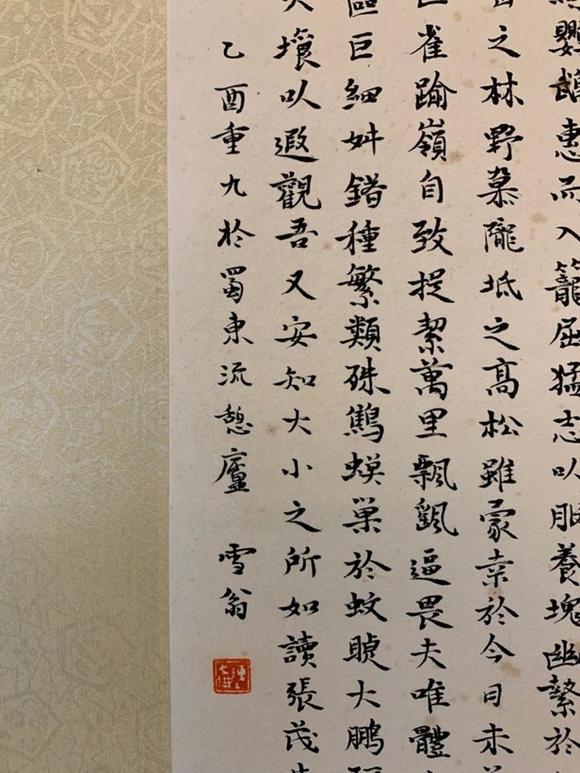 鸚鵡惠而入籠屈猛志以服養塊幽縶於
之林野慕隴坻之高松雖蒙幸於今日未
雀踰嶺自致提絜萬里飄颻逼畏夫唯體
區巨細舛錯種繁類殊鷦螟巢於蚊睫大鵬
壤以遐觀吾又安知大小之所如讀張茂
乙酉重九於蜀東流憩廬 雪翁